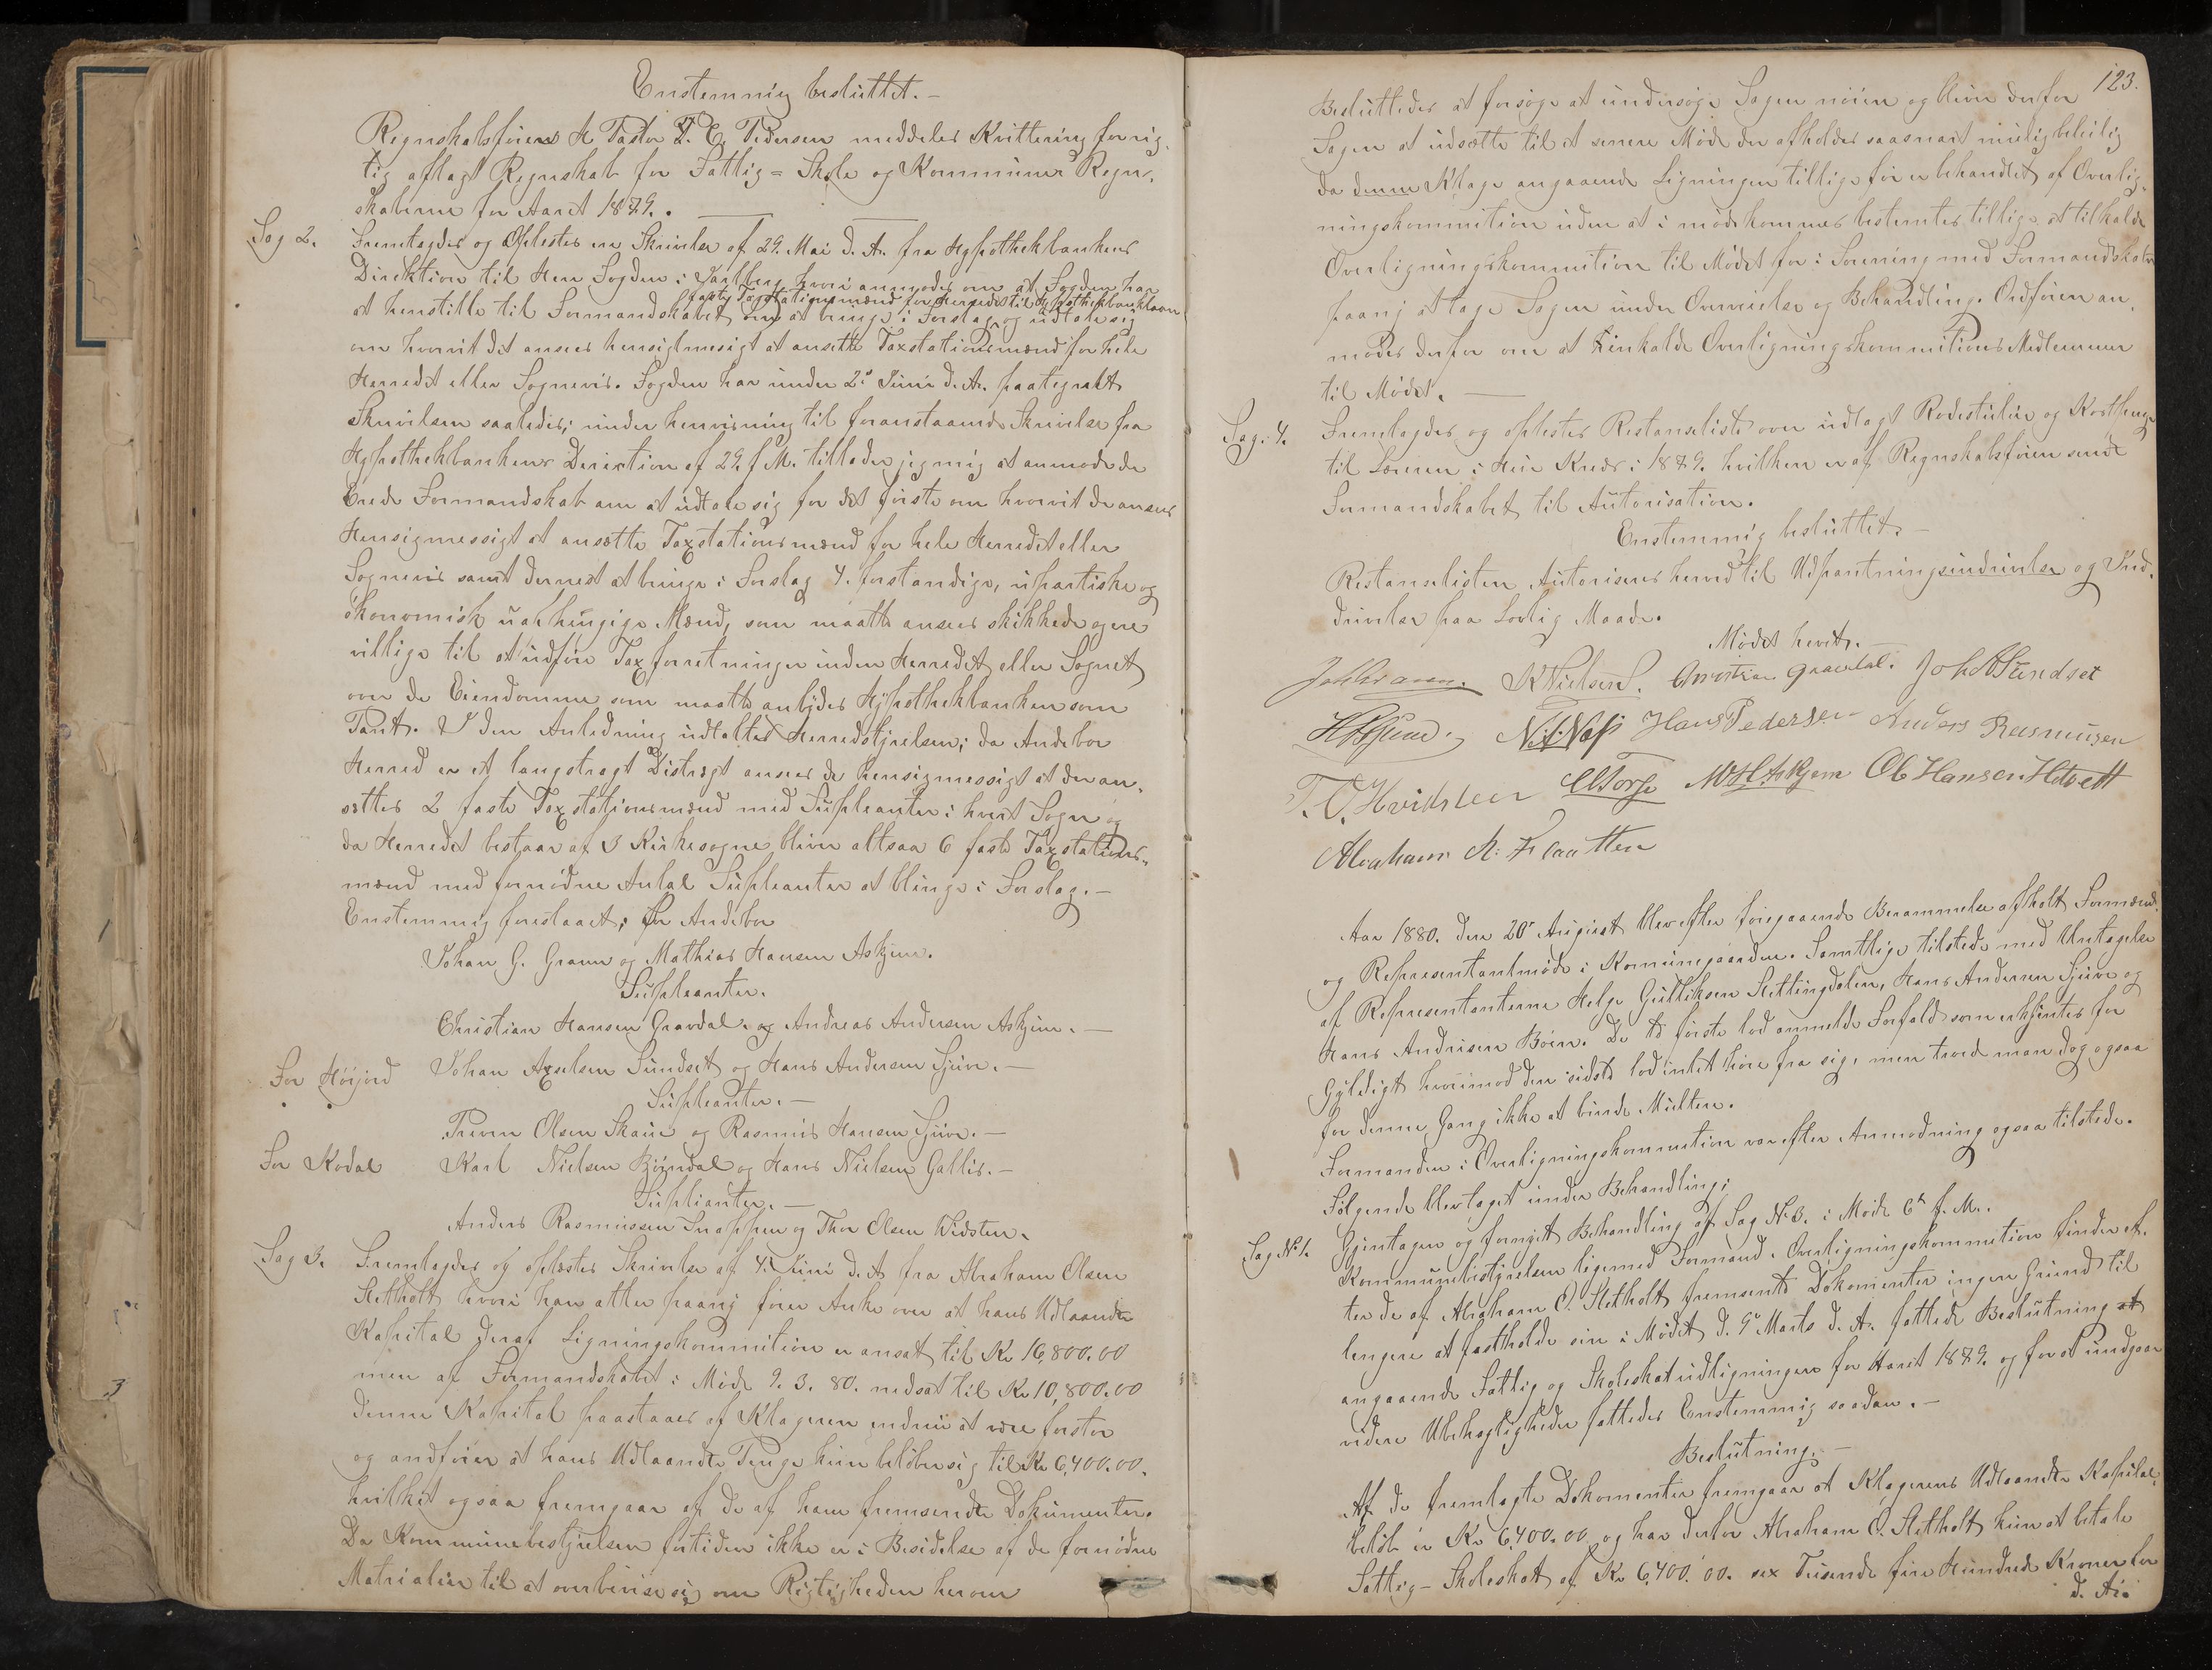 Enstemmig besluttet.—
Regnskabsførere Hr Pastor T. E. Pedersen meddeles Kvittering for rig-
tig aflagt Regnskab for Fattig- Skole og Kommunes Regn-
skaberne for Aaret 1879.
Sag 2. Fremlagdes og Oplestes en Skrivelse af 29. Mai d. A. fra Hypothekbankens
Direktion til Herr Fogden i Jarlberg hvori anmodes om at Fogden har
faste Taxstationsmænd for Herredet til Hypothekbanklaan
at henstille til Formandskabet om at bringe i Forslag og udtale sig
om hvorvit det ansees hensigtmesigt at ansette Taxstationsmænd for hele
Herredet eller Sognevis. Fogden har under 2den Juni d. A. paategnelt
Skrivelsen saaledes; under henvisning til foranstaaende Skrivelse fra
Hypothekbankens Direction af 29. f. M. tillader jeg mig at anmode de
Erede Formandskab om at udtale sig for det første om hvorvit de anser
Hensigmessigt at ansætte Taxstationsmænd for hele Herredet eller
Sognevis samt dernest at bringe i Forslag 4. forstandige, upartiske og
økonomisk uafhengige Mænd, som maatte ansees skikkede og ere
villige til at udføre Taxforretninger inden Herredet eller Sognet
over de Eiendomme som maatte anbydes Hypothekbanken som
Pant. I den Anledning udtalte Herredstyrelsen; da Andebor
Herred er et langstragt Distrægt ansees de hensigmessigt at der an-
settes 2 faste Taxstationsmænd med Supleanter i hvert Sogn og
da Herredet bestaar af 3 Kirkesogne bliver altsaa 6 faste Taxstations-
mænd med fornødne Antal Supleanter at bringe i Forslag.—
Enstemmig foreslaaet; For Andebor
Johan G. Graven og Mathias Hansen Askjem.
Supleanter.
Christian Hansen Gravdal. og Andreas Andersen Askjem.—
For Høijord Johan Axelsen Sundset og Hans Andersen Gjure.—
Supleanter.—
Iver Olsen Skaue og Rasmus Hansen Gjure.—
For Kodal Karl Nielsen Bjørndal og Hans Nielsen Gallis.—
Suplianter.—
Anders Rasmussen Snappen og Thor Olsen Vidsten.
Sag 3. Fremlagdes og oplæstes Skrivelse af 4. Juni d. A fra Abraham Olsen
Stetholt hvori han atter paany fører Anke over at hans Udlaante
Kapital der af Ligningskommition er ansat til Kr 16,800.00
men af Formandskabet i Møde 9. 3. 80. nedsat til Kr 10,800.00
denne Kapital paastaaes af Klageren endnu at være forstor
og andfører at hans Udlaante Penge kun beløber sig til Kr 6,400.00.
hvilket ogsaa fremgaar af de af ham fremsendte Dokumenter.
Da Kommunebestyrelsen fortiden ikke er i Besidelse af de fornødne
Matrialier til at overbevise sig om Rigtigheden herom
123.
Besluttedes at forsøge at undersøge Sagen nøiere og blive derfor
Sagen at udsætte til et senere Møde der afholdes saasnart mulig beleilig
da denne Klage angaaende Ligningen tillige før er behandlet af Overlig-
ningskommition uden at i møde kommes bestemtes tillige at tilkalde
Overligningskommition til Mødet for i Forening med Formandskabet
paany at tage Sagen under Overveielse og Behandling. Ordføren an-
modes derfor om at Indkalde Overligningskommitions Medlemmer
til Mødet.—
Sag. 4. Fremlagdes og oplestes Restanseliste over udlagt Rodestulin og Kostpenge
til Læreren i Høie Kreds i 1879. hvilken er af Regnskabsføren sendt
Formandskabet til Autorisation.
Enstemmig besluttet.—
Restanselisten Autoriseres herved til Udpantningsindrivelse og Ind-
drivelse paa Lovlig Maade.
Mødet hevet.—
Joh Graven. K Nielsen. Christian Gravdal. Joh A Sundset
H A Gjure. N. A. Næss Hans Pedersen Anders Rasmussen
T. O. Hvidsteen C Torp M H Askjem Ole Hansen Hotvett
Abraham A. Flaatten
Aar 1880. den 20de August blev efter foregaaende Berammelse afholt Formænd-
og Representantmøde i Komunegaarden. Samtlige tilstede med Untagelse
af Representanterne Helge Gulliksen Slettingdalen, Hans Andersen Gjure og
Hans Andrisen Bøen. De to første lod anmelde Forfald som erkjentes for
Gyldigt hvorimod den sidste lod intet høre fra sig, men troede man dog ogsaa
for denne Gang ikke at burde Mulktere.
Formanden i Overligningskommition var efter Anmodning ogsaa tilstede.
Følgende blev taget under Behandling;
Sag No 1. Gjentagen og fornyett Behandling af Sag No 3. i Møde 6te f. M..
Kommunebestyrelsen ligemed Formand. Overligningskommition finder ef-
ter de af Abraham O. Stetholt fremsente Dokomenter ingen Grund til
lengere at fastholde sin i Mødet d. 9de Marts d. A. fattede Beslutning at
angaaende Fattig og Skoleskatudligningen for Aaret 1879. og for at undgaa
videre Ubehageligheder fattedes Enstemmig saadan.—
Beslutning.—
Af de fremlagte Dokomenter fremgaar at Klagerens Udlaante Kapital-
beløb er Kr 6,400.00 og har derfor Abraham O. Stetholt kun at betale
Fattig- Skoleskat af Kr 6,400.00. sex Tusende fire Hundrede Kroner for
d. A.